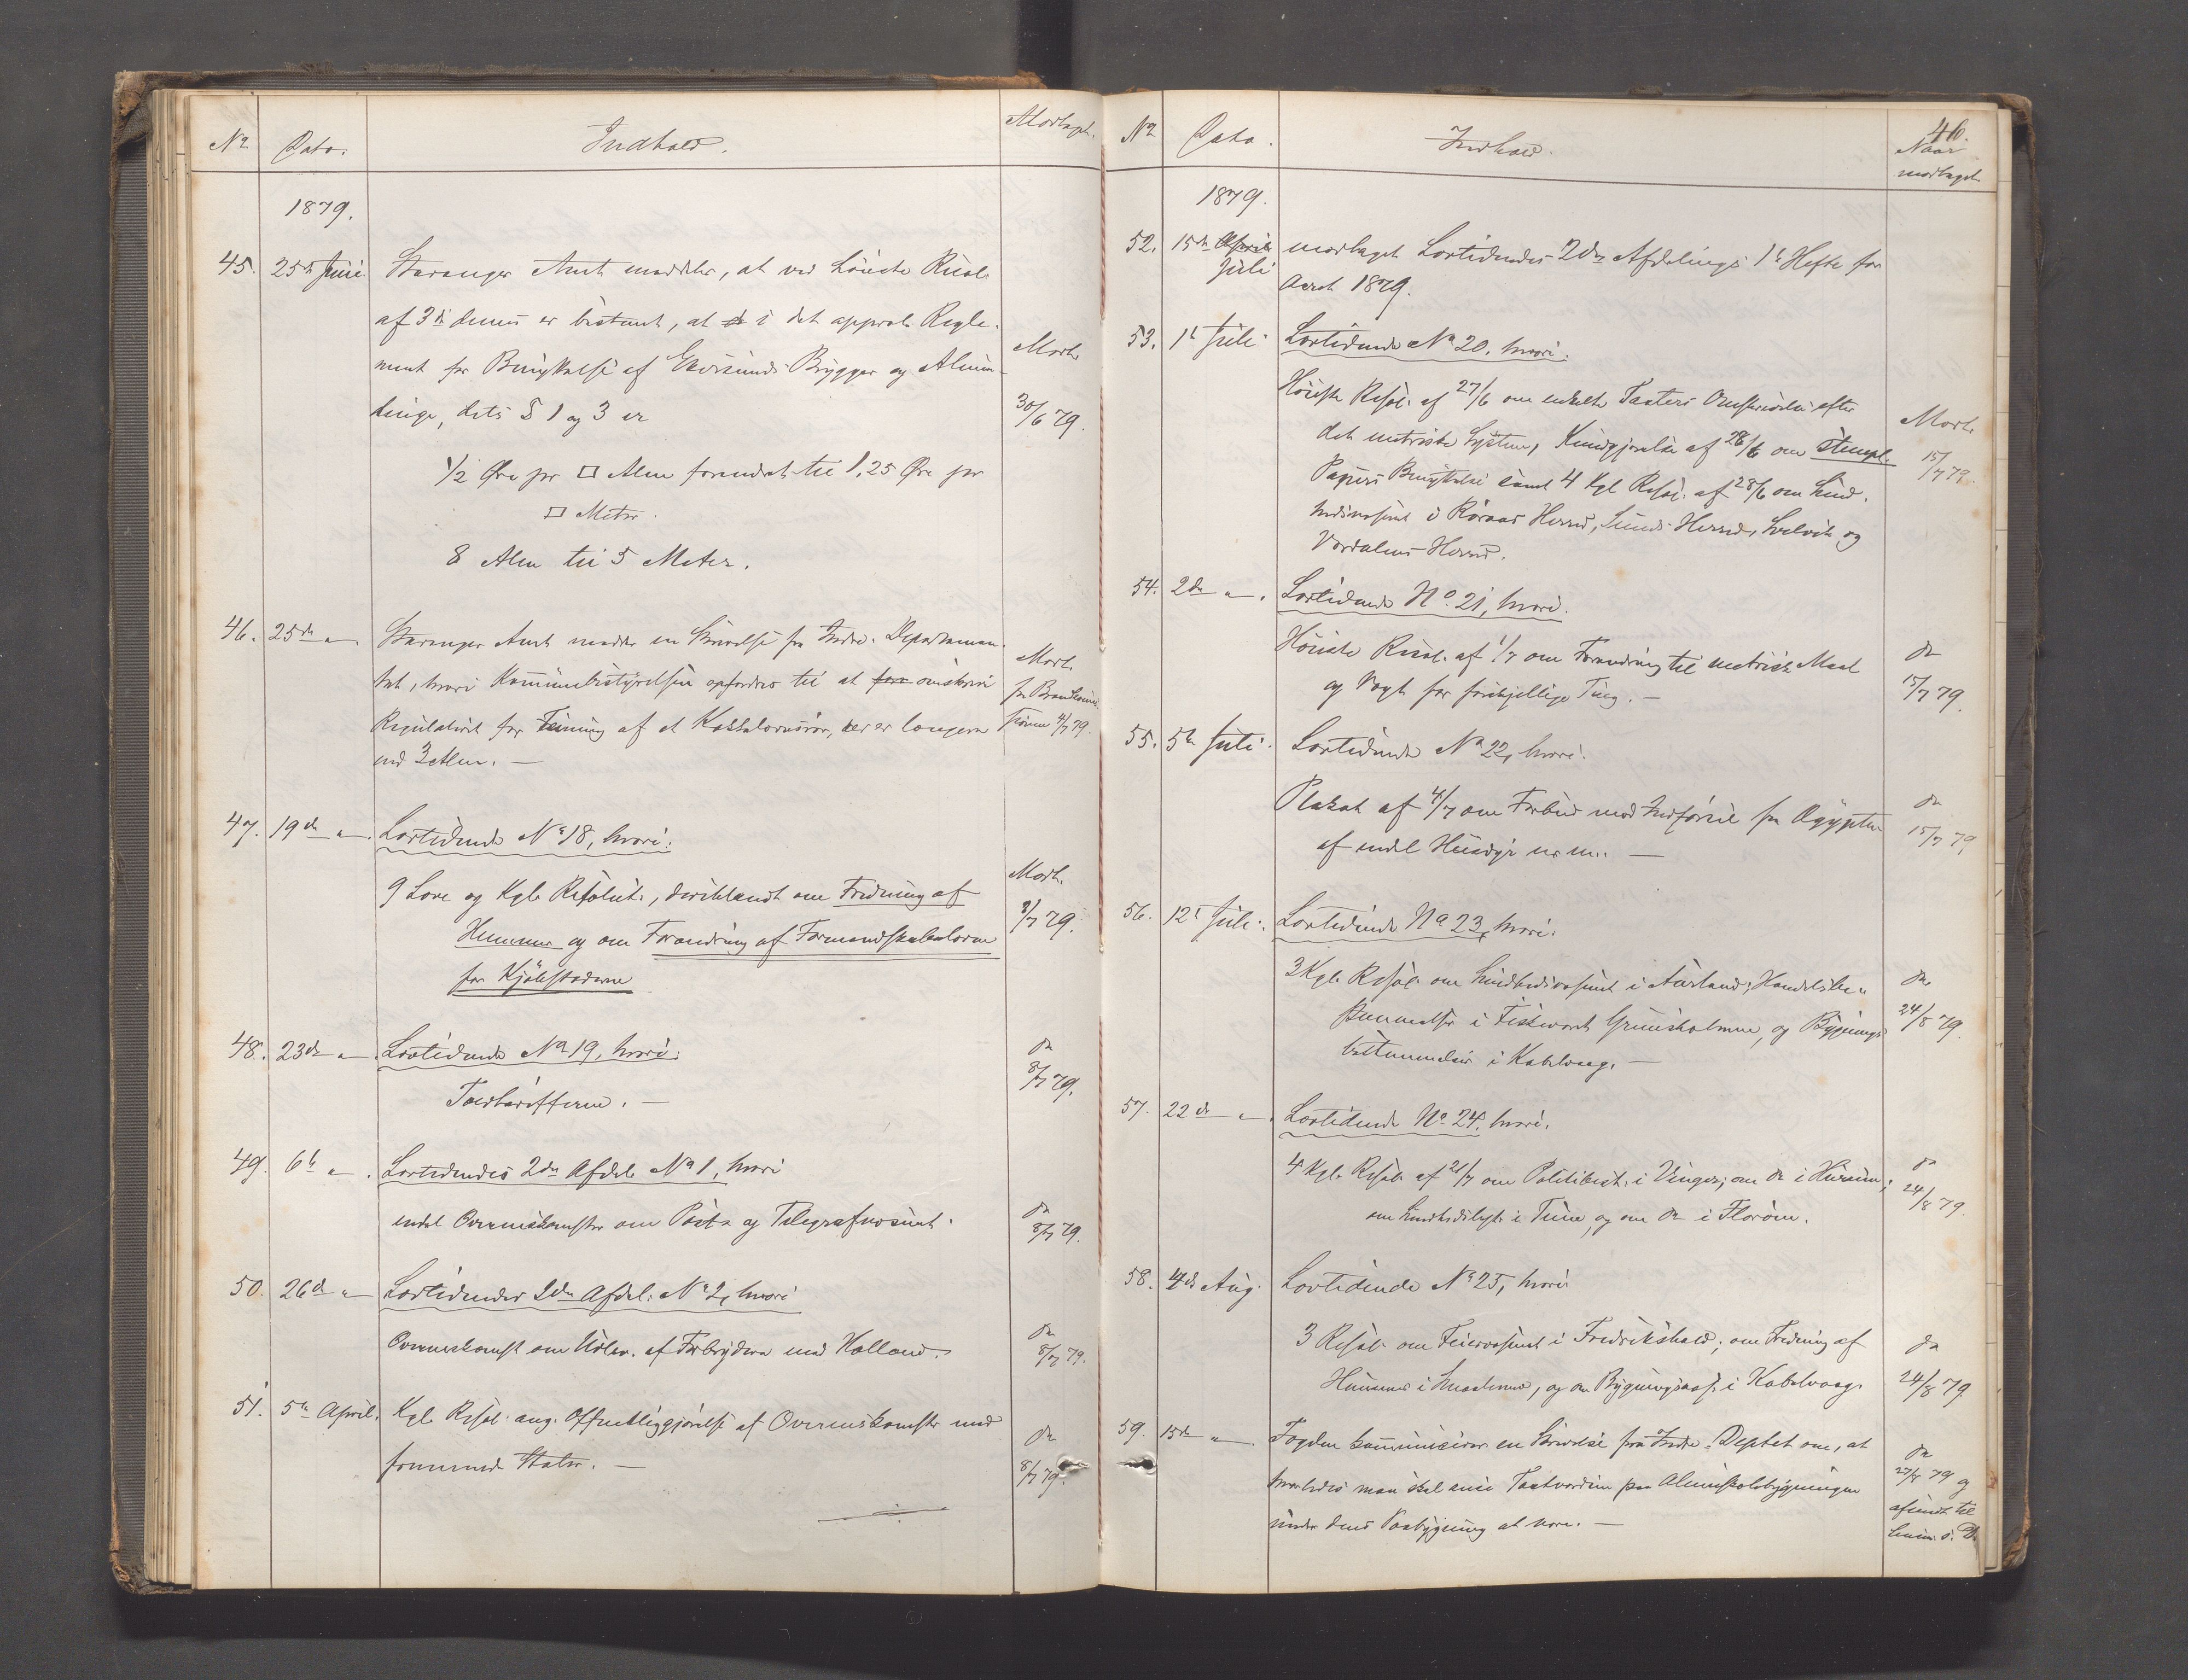 No Dato. Indhold. Modtaget.
1879.
45. 25de Juni Stavanger Amt meddeler, at ved höieste Resol.
af 3die dennes er bestemt, at i det approb. Regle-
ment for Benyttelse af Ekersunds Brygger og Almin-
dinge, dets § 1 og 3 er
Modt.
30/6 79.
1/2 Øre pr □ Alen forandret til 1,25 Øre pr
□ Meter.
8 Alen til 5 Meter.
46. 25de " Stavanger Amt medd. en Skrivelse fra Indre-Departemen-
tet, hvori Kommunebestyrelsen opfordres til at omskrive
Regulativet for Feining af et Kakkelovnsrör, der er længere
end 3 Alen. —
Modt.
fra Brandkommis-
sionen 4/7 79.
47. 19de " Lovtidende No 18, hvori:
9 Love og Kgl. Resolut., deriblandt om Fredning af
Hummer og om Forandring af Formandskabsloven
for Kjöbstæderne
Modt.
8/7 79.
48. 23de " Lovtidende No 19, hvori:
Toldtarifferne. —
do
8/7 79.
49. 6te " Lovtidendes 2den Afdel. No 1, hvori
endel Overenskomster om Post- og Telegrafvæsenet.
do
8/7 79.
50. 26de " Lovtidendes 2den Afdel. No 2, hvori
Overenskomst om Udlev. af Forbrydere med Holland.
do
8/7 79.
51. 5te April. Kgl. Resol. ang. Offentliggjörelse af Overenskomster med
fremmede Stater. —
do
8/7 79.
46.
No Dato. Indhold. Naar
modtaget
1879.
52. 15de April modtaget Lovtidendes 2den Afdelings 1ste Hefte for
Juli Aaret 1879.
53. 1ste Juli Lovtidende No 20, hvori:
Höieste Resol. af 27/6 om enkelte Taxters Omskrivelse efter
det metriske System, Kundgjörelse af 28/6 om Stempl.
Papirs Benyttelse samt 4 Kgl. Resol. af 28/6 om Sund-
hedsvæsenet i Röraas Herred, Sunds Herred, Svelvik og
Værdalens Herred.
Modt.
15/7 79.
54. 2den " Lovtidende No. 21, hvori.
Höieste Resol. af 1/7 om Forandring til metrisk Maal
og Vægt for forskjellige Ting. —
do
15/7 79.
55. 5te Juli. Lovtidende No 22, hvori.
Plakat af 4/7 om Forbud mod Indförsel fra Ægypten
af endel Huusdyr m. m. —
do
15/7 79.
56. 12te Juli. Lovtidende No 23, hvori:
3 Kgl. Resol. om Sundhedsvæsenet i Aurland, Handelsbe-
stemmelser i Fiskeværet Grimsholmen, og Bygnings-
bestemmelser i Kabelvaag. —
do
24/8 79.
57. 22de " Lovtidende No 24, hvori.
4 Kgl. Resol. af 21/7 om Politibest. i Vinger; om do i Hurum;
om Sundhedslyst i Tune, og om do i Floröen.
do
24/8 79.
58. 4de Aug. Lovtidende No 25, hvori
3 Resol. om Feiervæsenet i Fredrikshald; om Fredning af
Hummer i Smaalenene, og om Bygningsvæs. i Kabelvaag.
do
24/8 79
59. 15de " Fogden kommunicerer en Skrivelse fra Indre-Deptet om, at
hvorledes man skal anse Taxtværdien paa Almueskolebygningen
under dens Paabygning at være. —
do
27/8 79 og
afsendt til